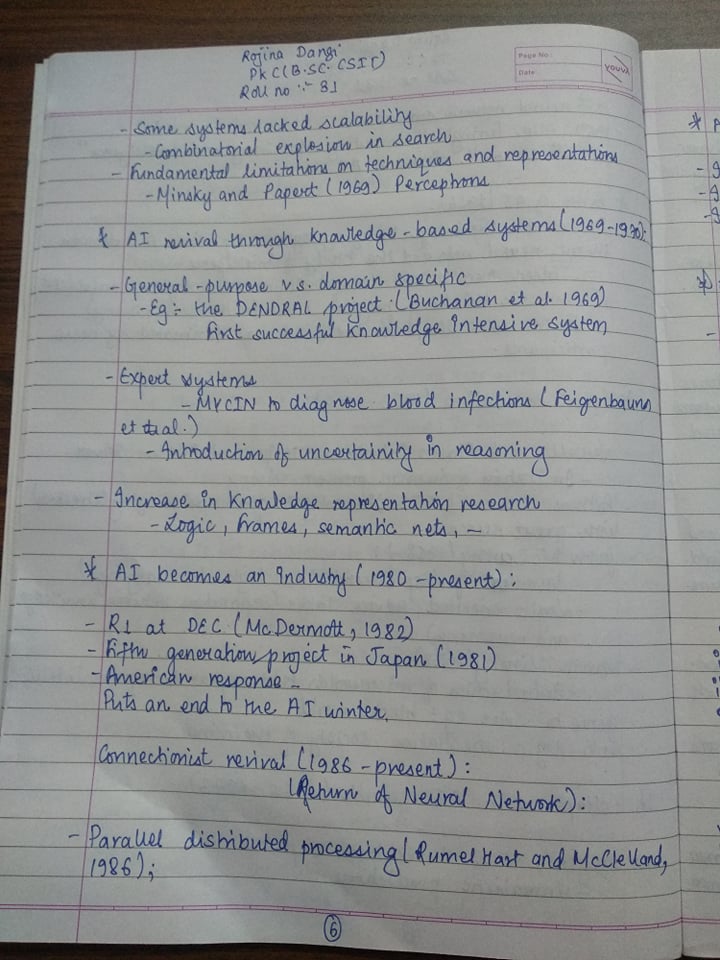 Rojina Dangi
PKC(B.SC. CSIT)
Roll no :- 81
Page No:
Date
youva
- Some systems lacked scalability
- Combinatorial explosion in search
- Fundamental limitations on techniques and representations
- Minsky and Papert (1969) Percephons
* AI revival through knowledge-based systems (1969-1970):
- General-purpose vs. domain specific
- Eg:- the DENDRAL project (Buchanan et al. 1969)
First successful knowledge intensive system
- Expert systems
- MYCIN to diagnose blood infections (Feigenbaum
et al.)
- Introduction of uncertainity in reasoning
- Increase in knowledge representation research
- Logic, frames, semantic nets, -
* AI becomes an industry (1980-present):
- R1 at DEC (McDermott, 1982)
- Fifth generation project in Japan (1981)
- American response -
Puts an end to the AI winter.
Connectionist revival (1986-present):
(Return of Neural Network):
- Parallel distributed processing (RumelHart and McClelland,
1986);
6